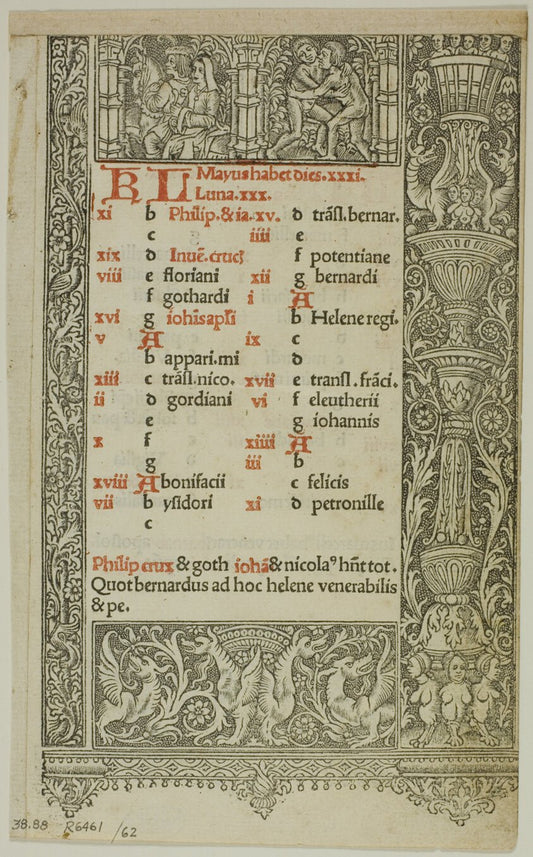 KL Mayus habet dies.xxxi.
Luna.xxx.
xi b Philip.&ia.
c
xix d Inuē.crucꝭ
viii e floriani
f gothardi
xvi g iohīs apl̄i
v A
b appari.mi
xiii c trāsl.nico.
ii d gordiani
e
x f
g
xviii A bonifacii
vii b ysidori
c
xv. d trāsl.bernar.
iiii e
f potentiane
xii g bernardi
i A
b Helene regi.
ix c
d
xvii e transl.frāci.
vi f eleutherii
g iohannis
xiiii A
iii b
c felicis
xi d petronille
Philip crux & goth iohā & nicolaꝰ hn̄t tot.
Quot bernardus ad hoc helene venerabilis
& pe.
38.88 R6461 /62